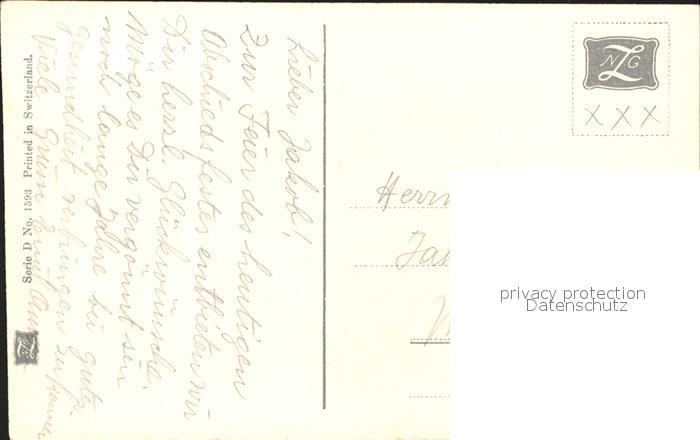 Lieber Jakob!
Zur Feier des heutigen
Abschiedsfestes entbieten wir
Dir herzl. Glückwünsche.
Möge es Dir vergönnt sein
noch lange Jahre bei guter
Gesundheit verbringen zu können
Viele Grüsse
Serie D No. 1593 Printed in Switzerland.
NZG
X X X
Herrn
privacy protection
Datenschutz